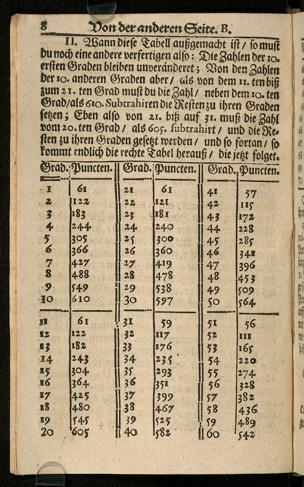 8 Von der anderen Seite. B.
11. Wann diese Tabell außgemacht ist / so must
du noch eine andere verfertigen also: Die Zahlen der 10.
ersten Graden bleiben unverändert; Von den Zahlen
der 10. anderen Graden aber / als von dem 11. ten biß
zum 21. ten Grad must du die Zahl / neben dem 10. ten
Grad / als 610. Subtrahiren die Resten zu ihren Graden
setzen; Eben also von 21. biß auf 31. muß die Zahl
vom 20. ten Grad / als 605. subtrahirt / und die Re-
sten zu ihren Graden gesetzt werden / und so fortan / so
kommt endlich die rechte Tabel herauß / die jetzt folget.
Grad. Puncten. Grad. Puncten. Grad. Puncten.
1 61 21 61 41 57
2 122 22 121 42 115
3 183 23 181 43 172
4 244 24 240 44 228
5 305 25 300 45 285
6 366 26 360 46 341
7 427 27 419 47 396
8 488 28 478 48 453
9 549 29 538 49 509
10 610 30 597 50 564
11 61 31 59 51 56
12 122 32 117 52 111
13 182 33 176 53 165
14 243 34 235 54 220
15 304 35 293 55 274
16 364 36 351 56 328
17 425 37 399 57 382
18 480 38 467 58 436
19 545 39 525 59 489
20 605 40 582 60 542